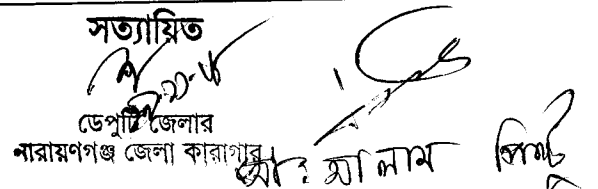 সত্যায়িত
ডেপুটি জেলার
নারায়ণগঞ্জ জেলা কারাগার
মোঃ আলাম পিন্টু